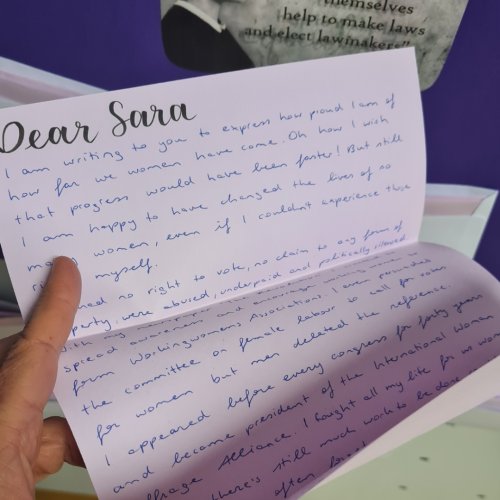 themselves
help to make laws
and elect lawmakers"
Dear Sara
I am writing to you to express how proud I am of
how far we women have come. Oh how I wish
that progress would have been faster! But still
I am happy to have changed the lives of so
many women, even if I couldn't experience those
myself.
had no right to vote, no claim to any form of
perty, were abused, underpaid and politically silenced
with my
spread awareness and encourage working women to
form Workingwomens Associations. I even persuaded
the committee on female labour to call for votes
for women but men deleted the reference.
I appeared before every congress for forty years
and became president of the International Women
ffrage Alliance. I fought all my life for us wom
there's still much work to be done in
often